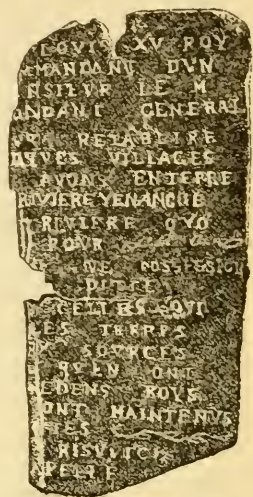 LOVIS XV ROY
EMANDANT DVN
RSIEVR LE M
ANDANT GENERAL
RETABLIRE
QVES VILLAGES
AVONS ENTERRE
RIVIERE YENANGUE
RIVIERE OYO
POVR
DE POSSESSION
DITTE
CELLES QVI
LES TERRES
SOVRCES
QVEN ONT
CEDENS ROVS
ONT MAINTENVS
TES
RISVVICK
APELLE